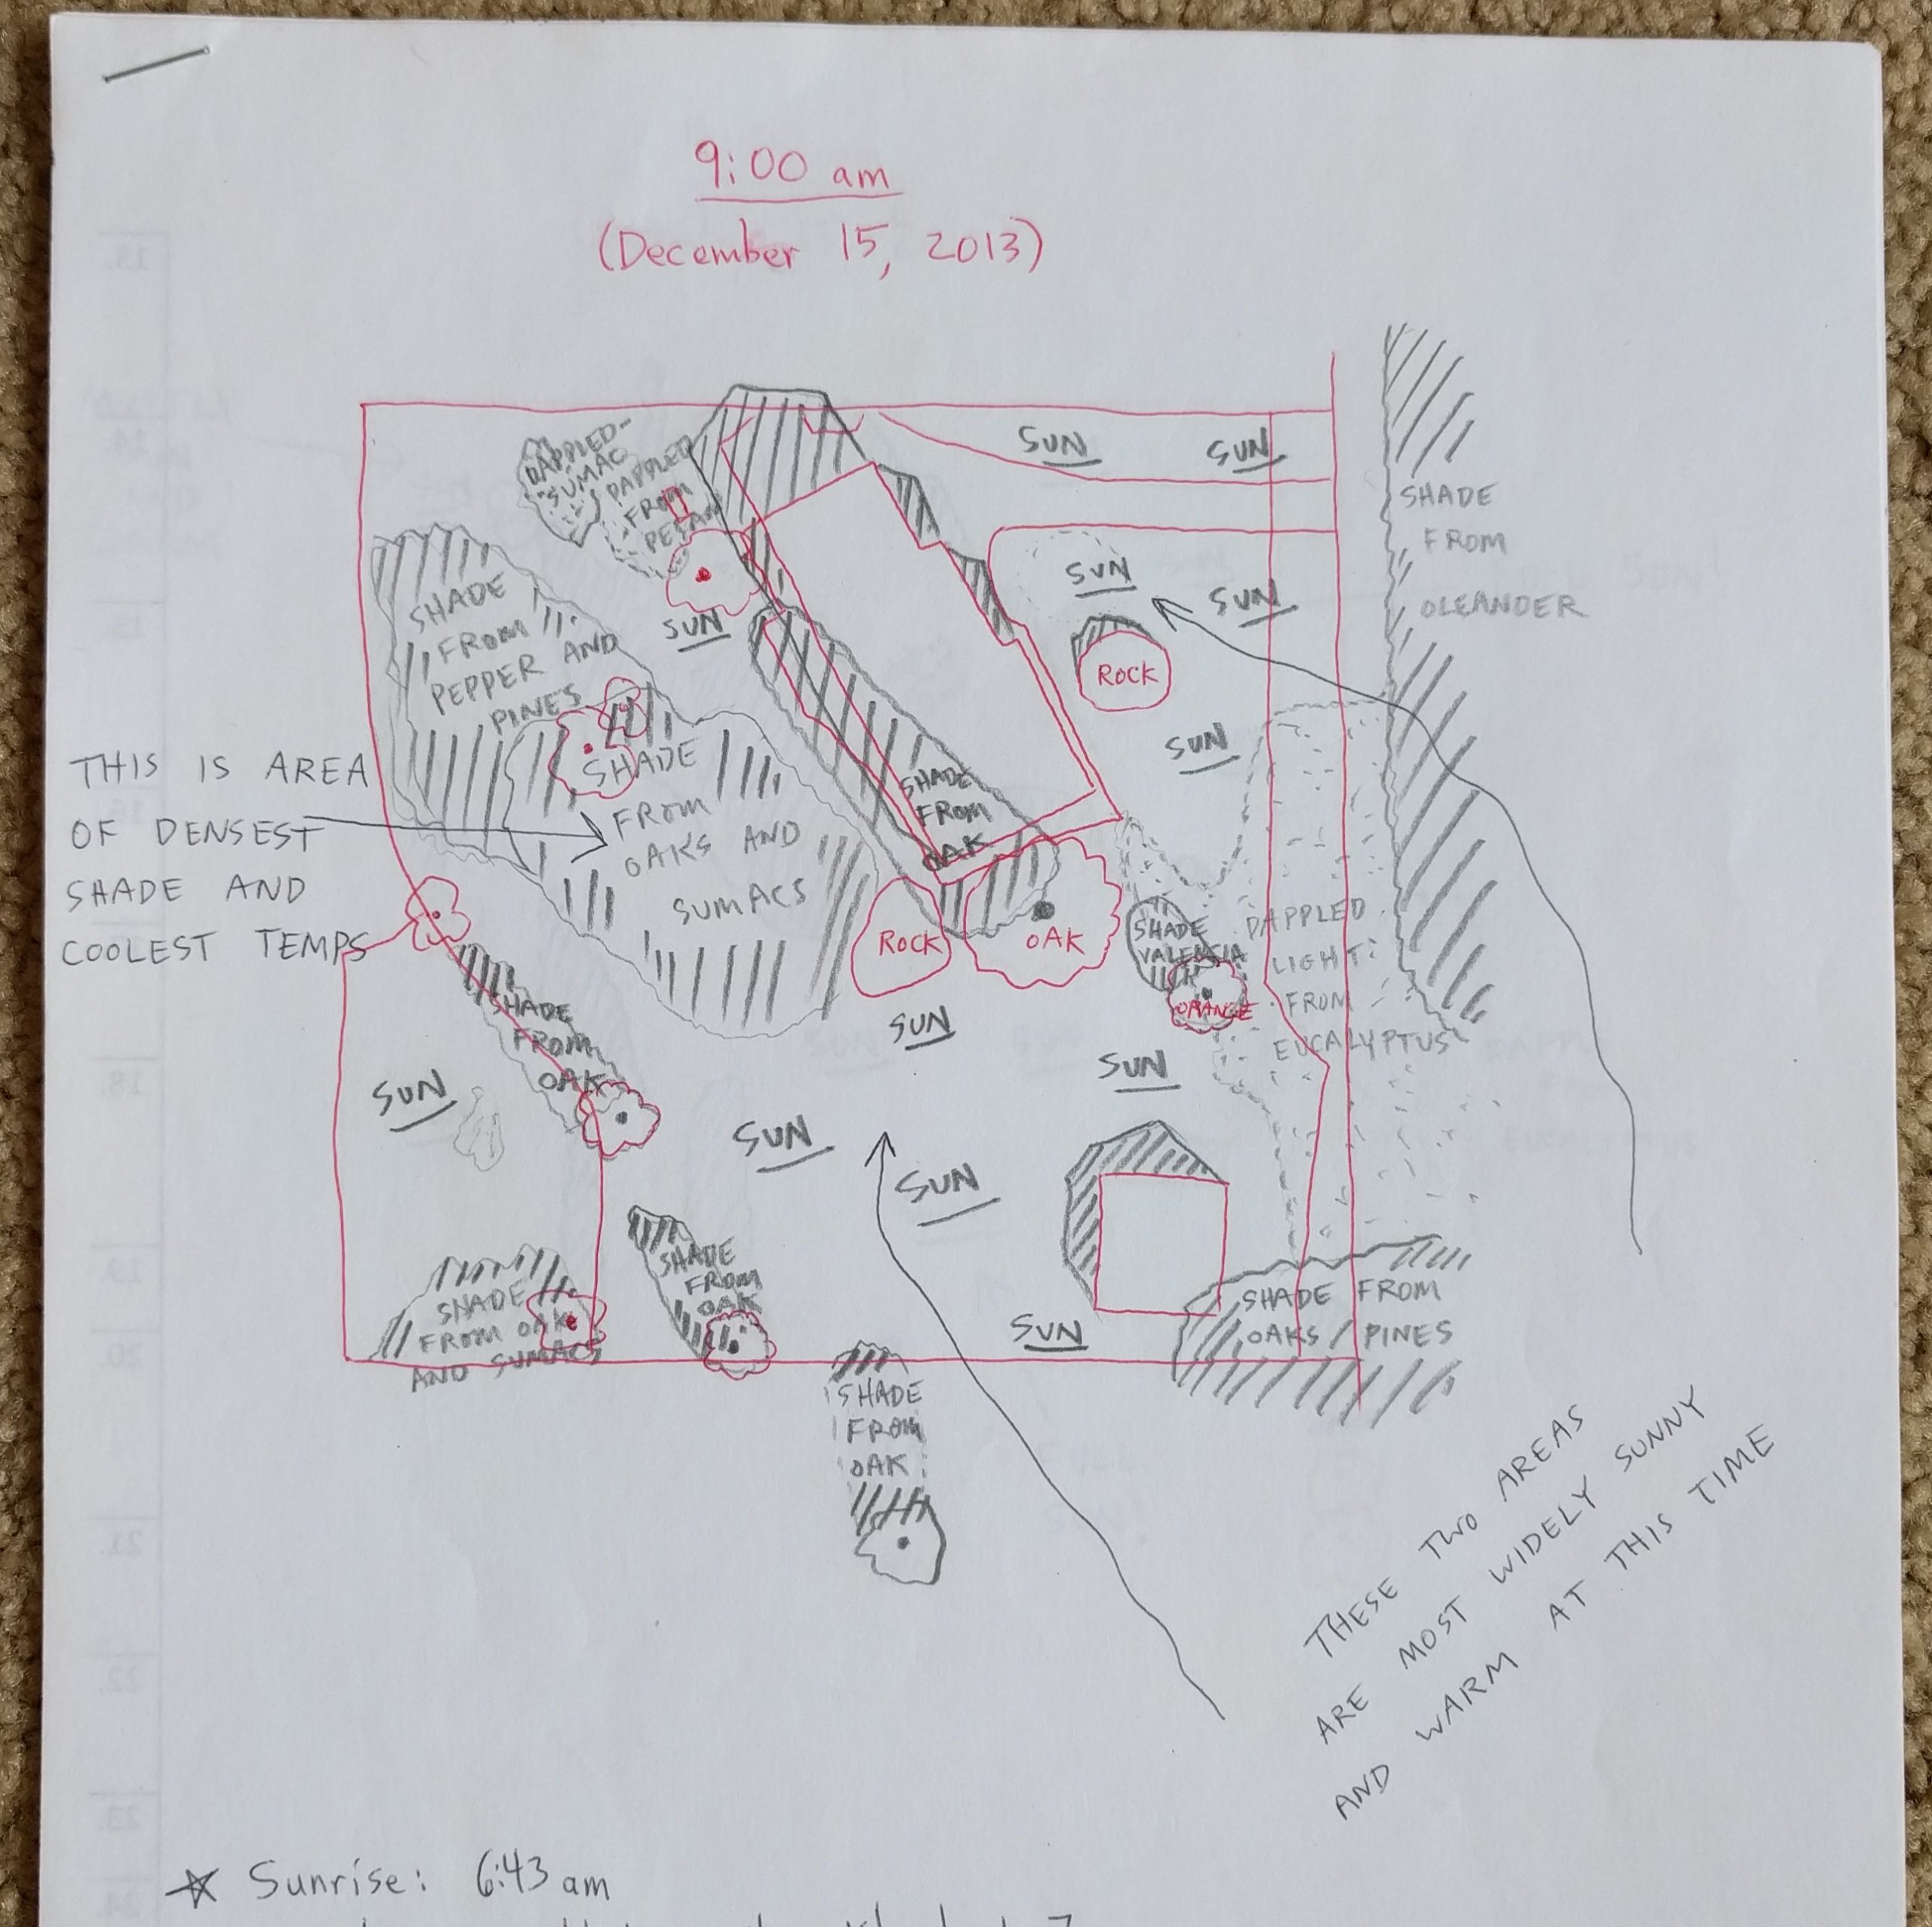 9:00 am
(December 15, 2013)
DAPPLED-
SUMAC
DAPPLED
FROM
PECAN
SUN
SUN
SHADE
FROM
OLEANDER
SUN
SUN
SHADE
FROM
PEPPER AND
PINES
SUN
ROCK
SUN
THIS IS AREA
OF DENSEST
SHADE AND
COOLEST TEMPS
SHADE
FROM
OAKS AND
SUMACS
SHADE
FROM
OAK
ROCK
OAK
SHADE
VALENCIA
ORANGE
DAPPLED
LIGHT
FROM
EUCALYPTUS
SHADE
FROM
OAK
SUN
SUN
SUN
SUN
SUN
SHADE
FROM OAK
AND SUMACS
SHADE
FROM
OAK
SUN
SHADE FROM
OAKS / PINES
SHADE
FROM
OAK
THESE TWO AREAS
ARE MOST WIDELY SUNNY
AND WARM AT THIS TIME
☆ Sunrise: 6:43 am